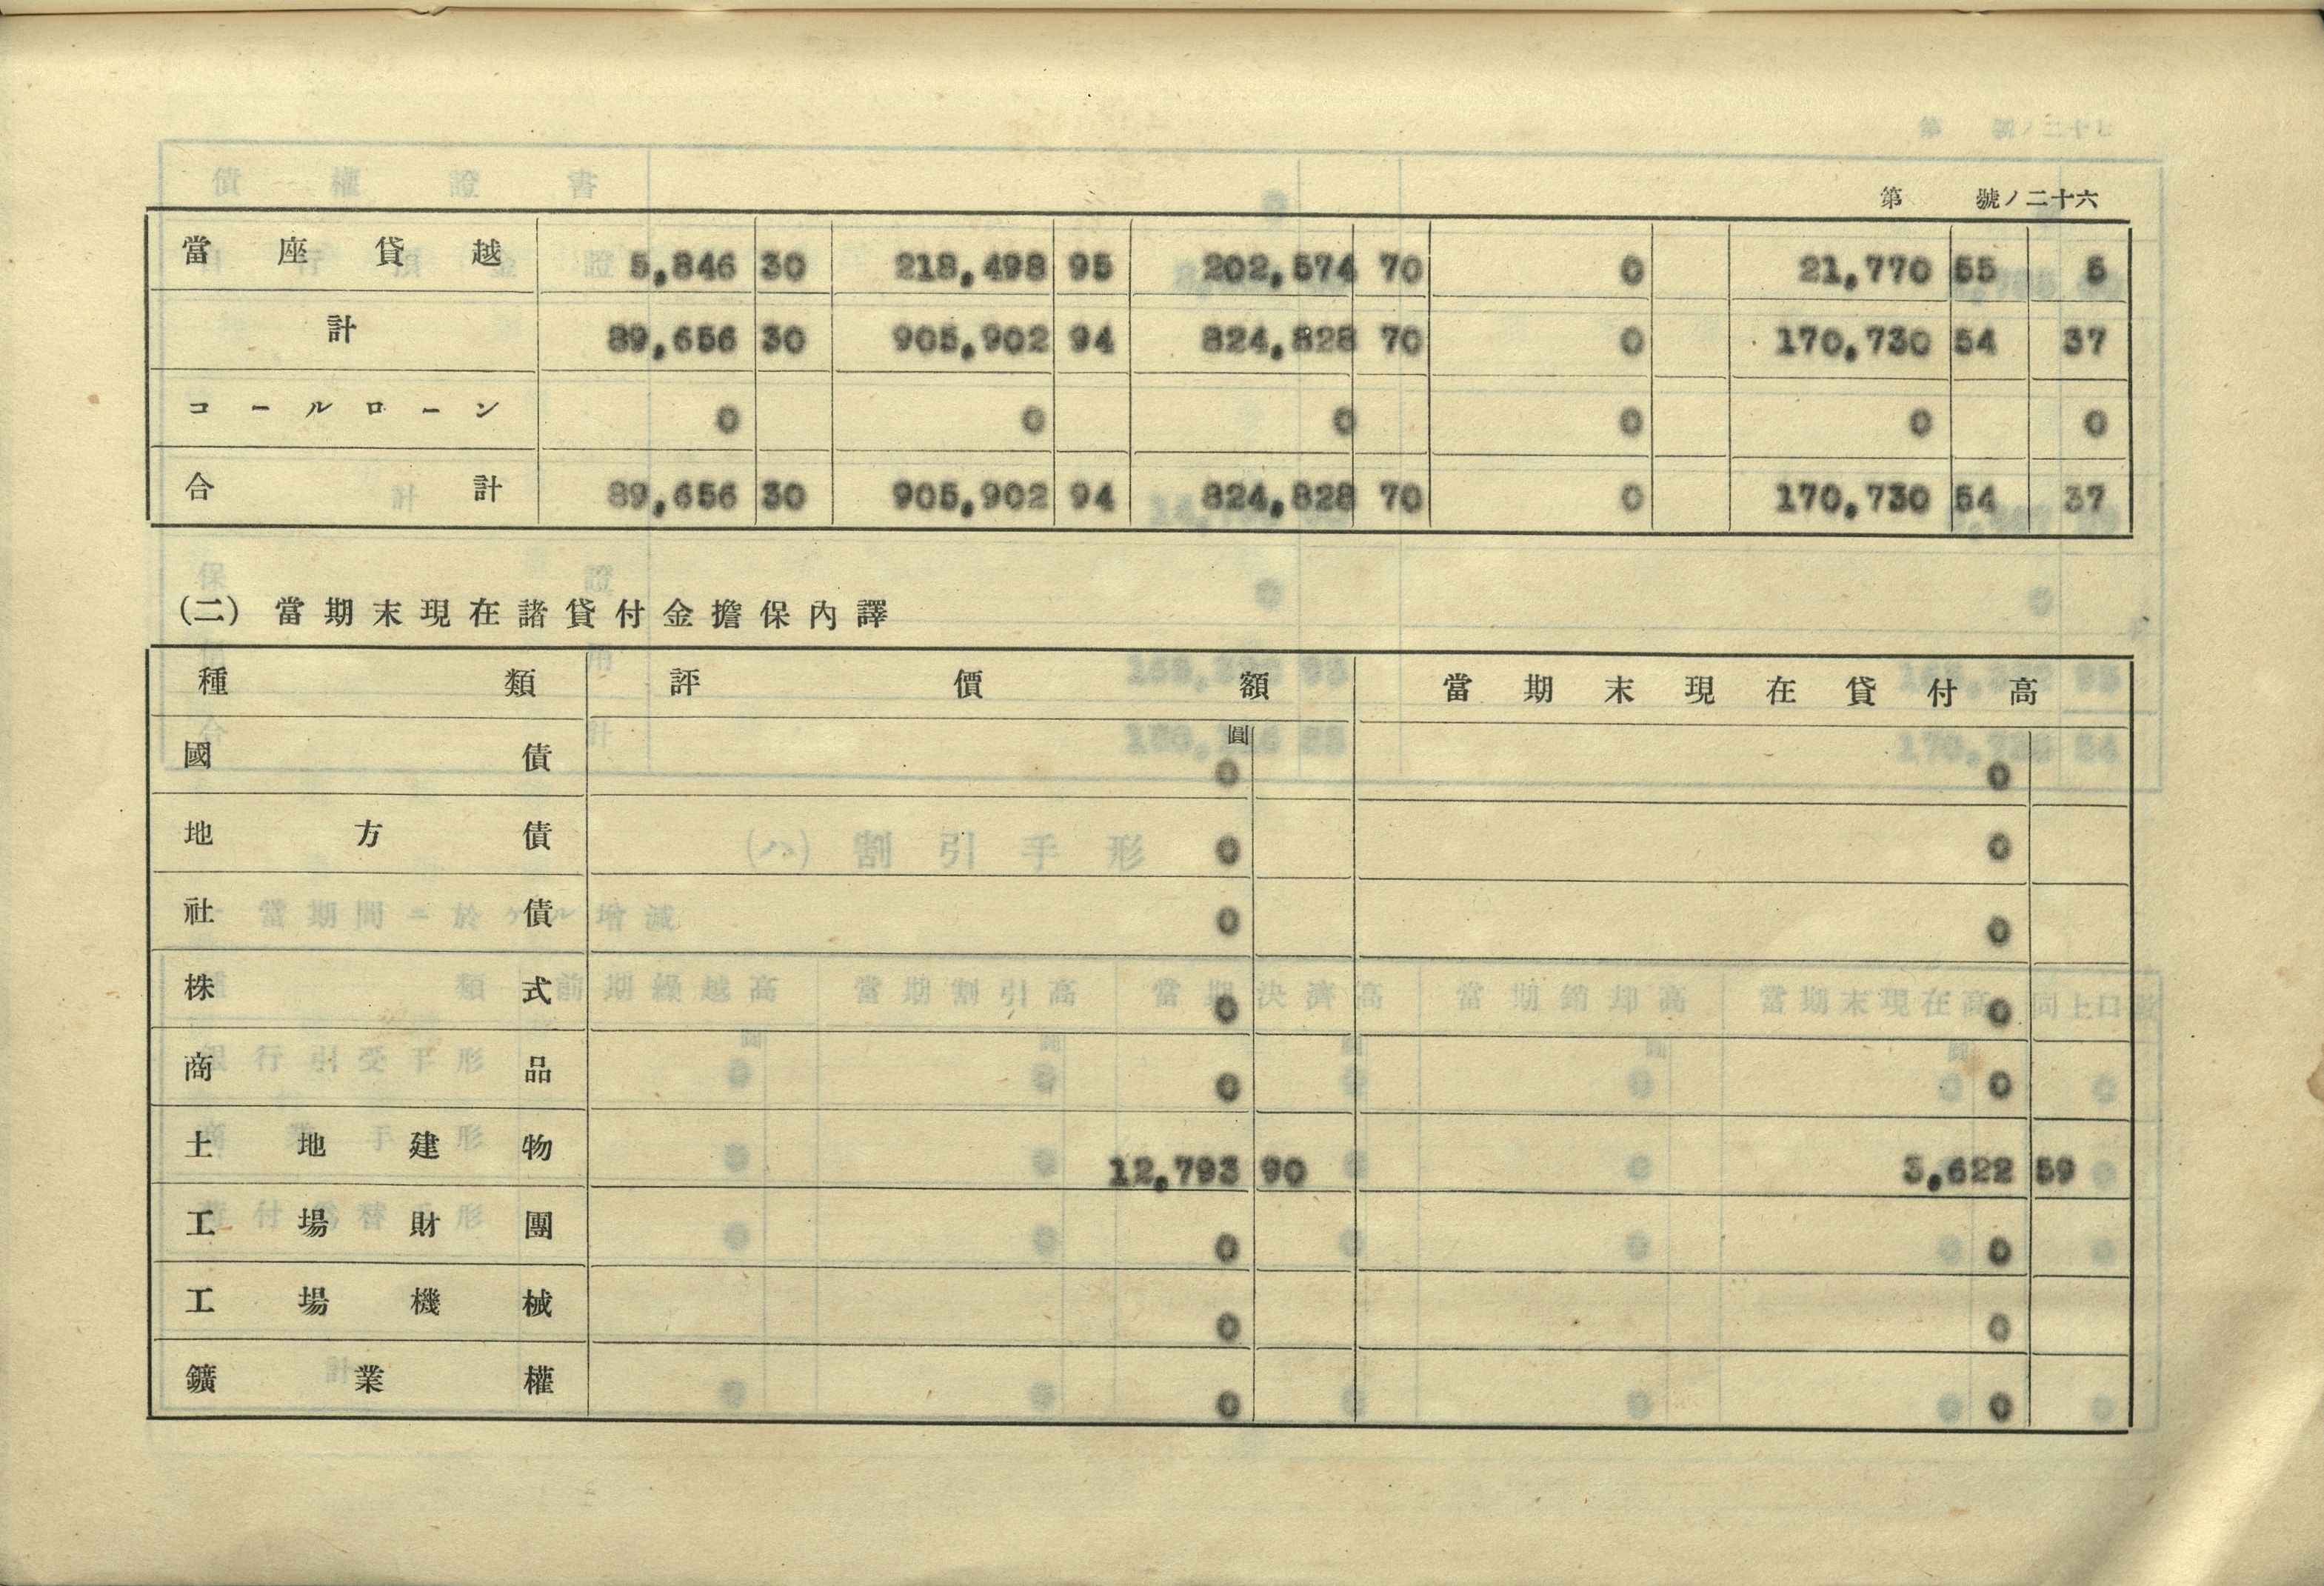 第 號ノ二十六
當座貸越 5,846 30 218,498 95 202,574 70 0 21,770 55 5
計 89,656 30 905,902 94 824,828 70 0 170,730 54 37
コールローン 0 0 0 0 0 0
合計 89,656 30 905,902 94 824,828 70 0 170,730 54 37
(二) 當期末現在諸貸付金擔保內譯
種類 評價額 當期末現在貸付高
國債 圓 0 0
地方債 0 0
社債 0 0
株式 0 0
商品 0 0
土地建物 12,793 90 3,622 59
工場財團 0 0
工場機械 0 0
鑛業權 0 0